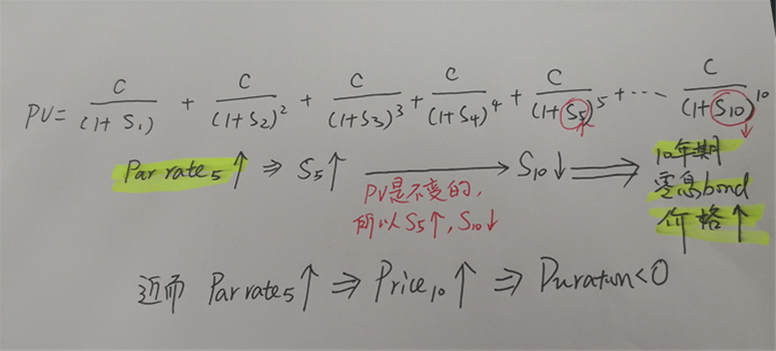 PV= C/(1+S₁) + C/(1+S₂)² + C/(1+S₃)³ + C/(1+S₄)⁴ + C/(1+S₅)⁵ + ··· C/(1+S₁₀)¹⁰
Par rate₅↑ ⇒ S₅↑ → S₁₀↓ ⇒ 10年期
零息bond
价格↑
PV是不变的,
所以S₅↑, S₁₀↓
近而 Par rate₅↑ ⇒ Price₁₀↑ ⇒ Duration<0